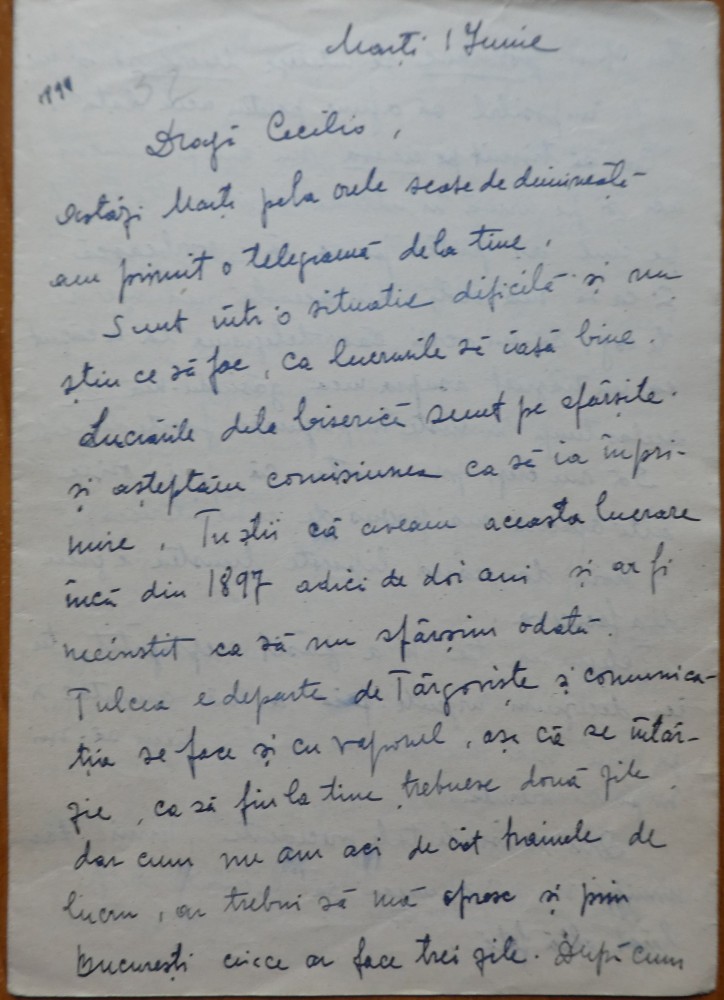 Marți 1 Iunie
1899
Dragă Cecilio,
Astăzi Marți pela orele șease de dimineață
am primit o telegramă dela tine.
Sunt într'o situatie dificilă și nu
știu ce să fac, ca lucrurile să iasă bine.
Lucrările dela biserică sunt pe sfârșite.
și așteptăm comisiunea ca să ia în pri-
mire. Tu știi că aveam aceasta lucrare
încă din 1897 adică de doi ani și ar fi
necinstit ca să nu sfârșim odată.
Tulcea e departe de Târgoviște și comunica-
ția se face și cu vaporul, așa că se întâr-
zie, ca să fiu la tine trebuesc două zile
dar cum nu am aci de cât hainele de
lucru, ar trebui să mă opresc și prin
București ceiace ar face trei zile. După cum